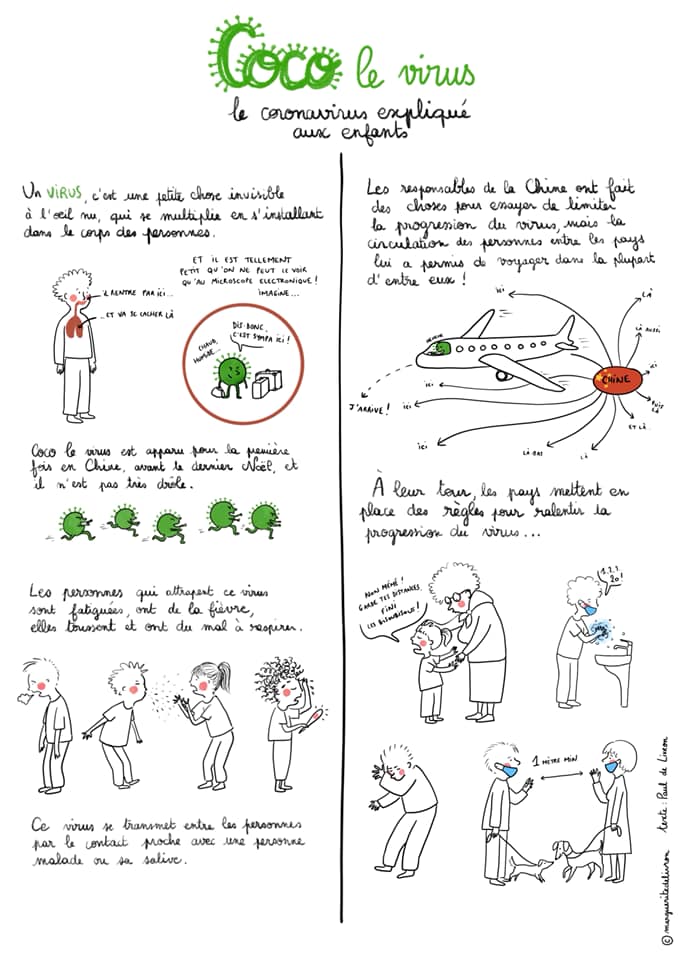 Coco le virus
le coronavirus expliqué
aux enfants
Un VIRUS, c'est une petite chose invisible
à l'oeil nu, qui se multiplie en s'installant
dans le corps des personnes.
ET IL EST TELLEMENT
PETIT QU'ON NE PEUT LE VOIR
QU'AU MICROSCOPE ELECTRONIQUE !
IMAGINE...
IL RENTRE PAR ICI...
...ET VA SE CACHER LÀ
DIS-DONC,
C'EST SYMPA ICI !
CHAUD,
HUMIDE
Coco le virus est apparu pour la première
fois en Chine, avant le dernier Noël, et
il n'est pas très drôle.
Les personnes qui attrapent ce virus
sont fatiguées, ont de la fièvre,
elles toussent et ont du mal à respirer.
Ce virus se transmet entre les personnes
par le contact proche avec une personne
malade ou sa salive.
Les responsables de la Chine ont fait
des choses pour essayer de limiter
la progression du virus, mais la
circulation des personnes entre les pays
lui a permis de voyager dans la plupart
d'entre eux !
ici
LÀ
LÀ AUSSI
ICI
CHINE
PUIS
LÀ
ET LÀ..
LÀ
LÀ-BAS
ici
ici
ici
J'ARRIVE !
À leur tour, les pays mettent en
place des règles pour ralentir la
progression du virus...
NON MÉMÉ !
GARDE TES DISTANCES,
FINI
LES BISOUBISOUS !
1.2.3.
20!
1 MÈTRE MIN
© margueritedelivron texte : Paul de Livron